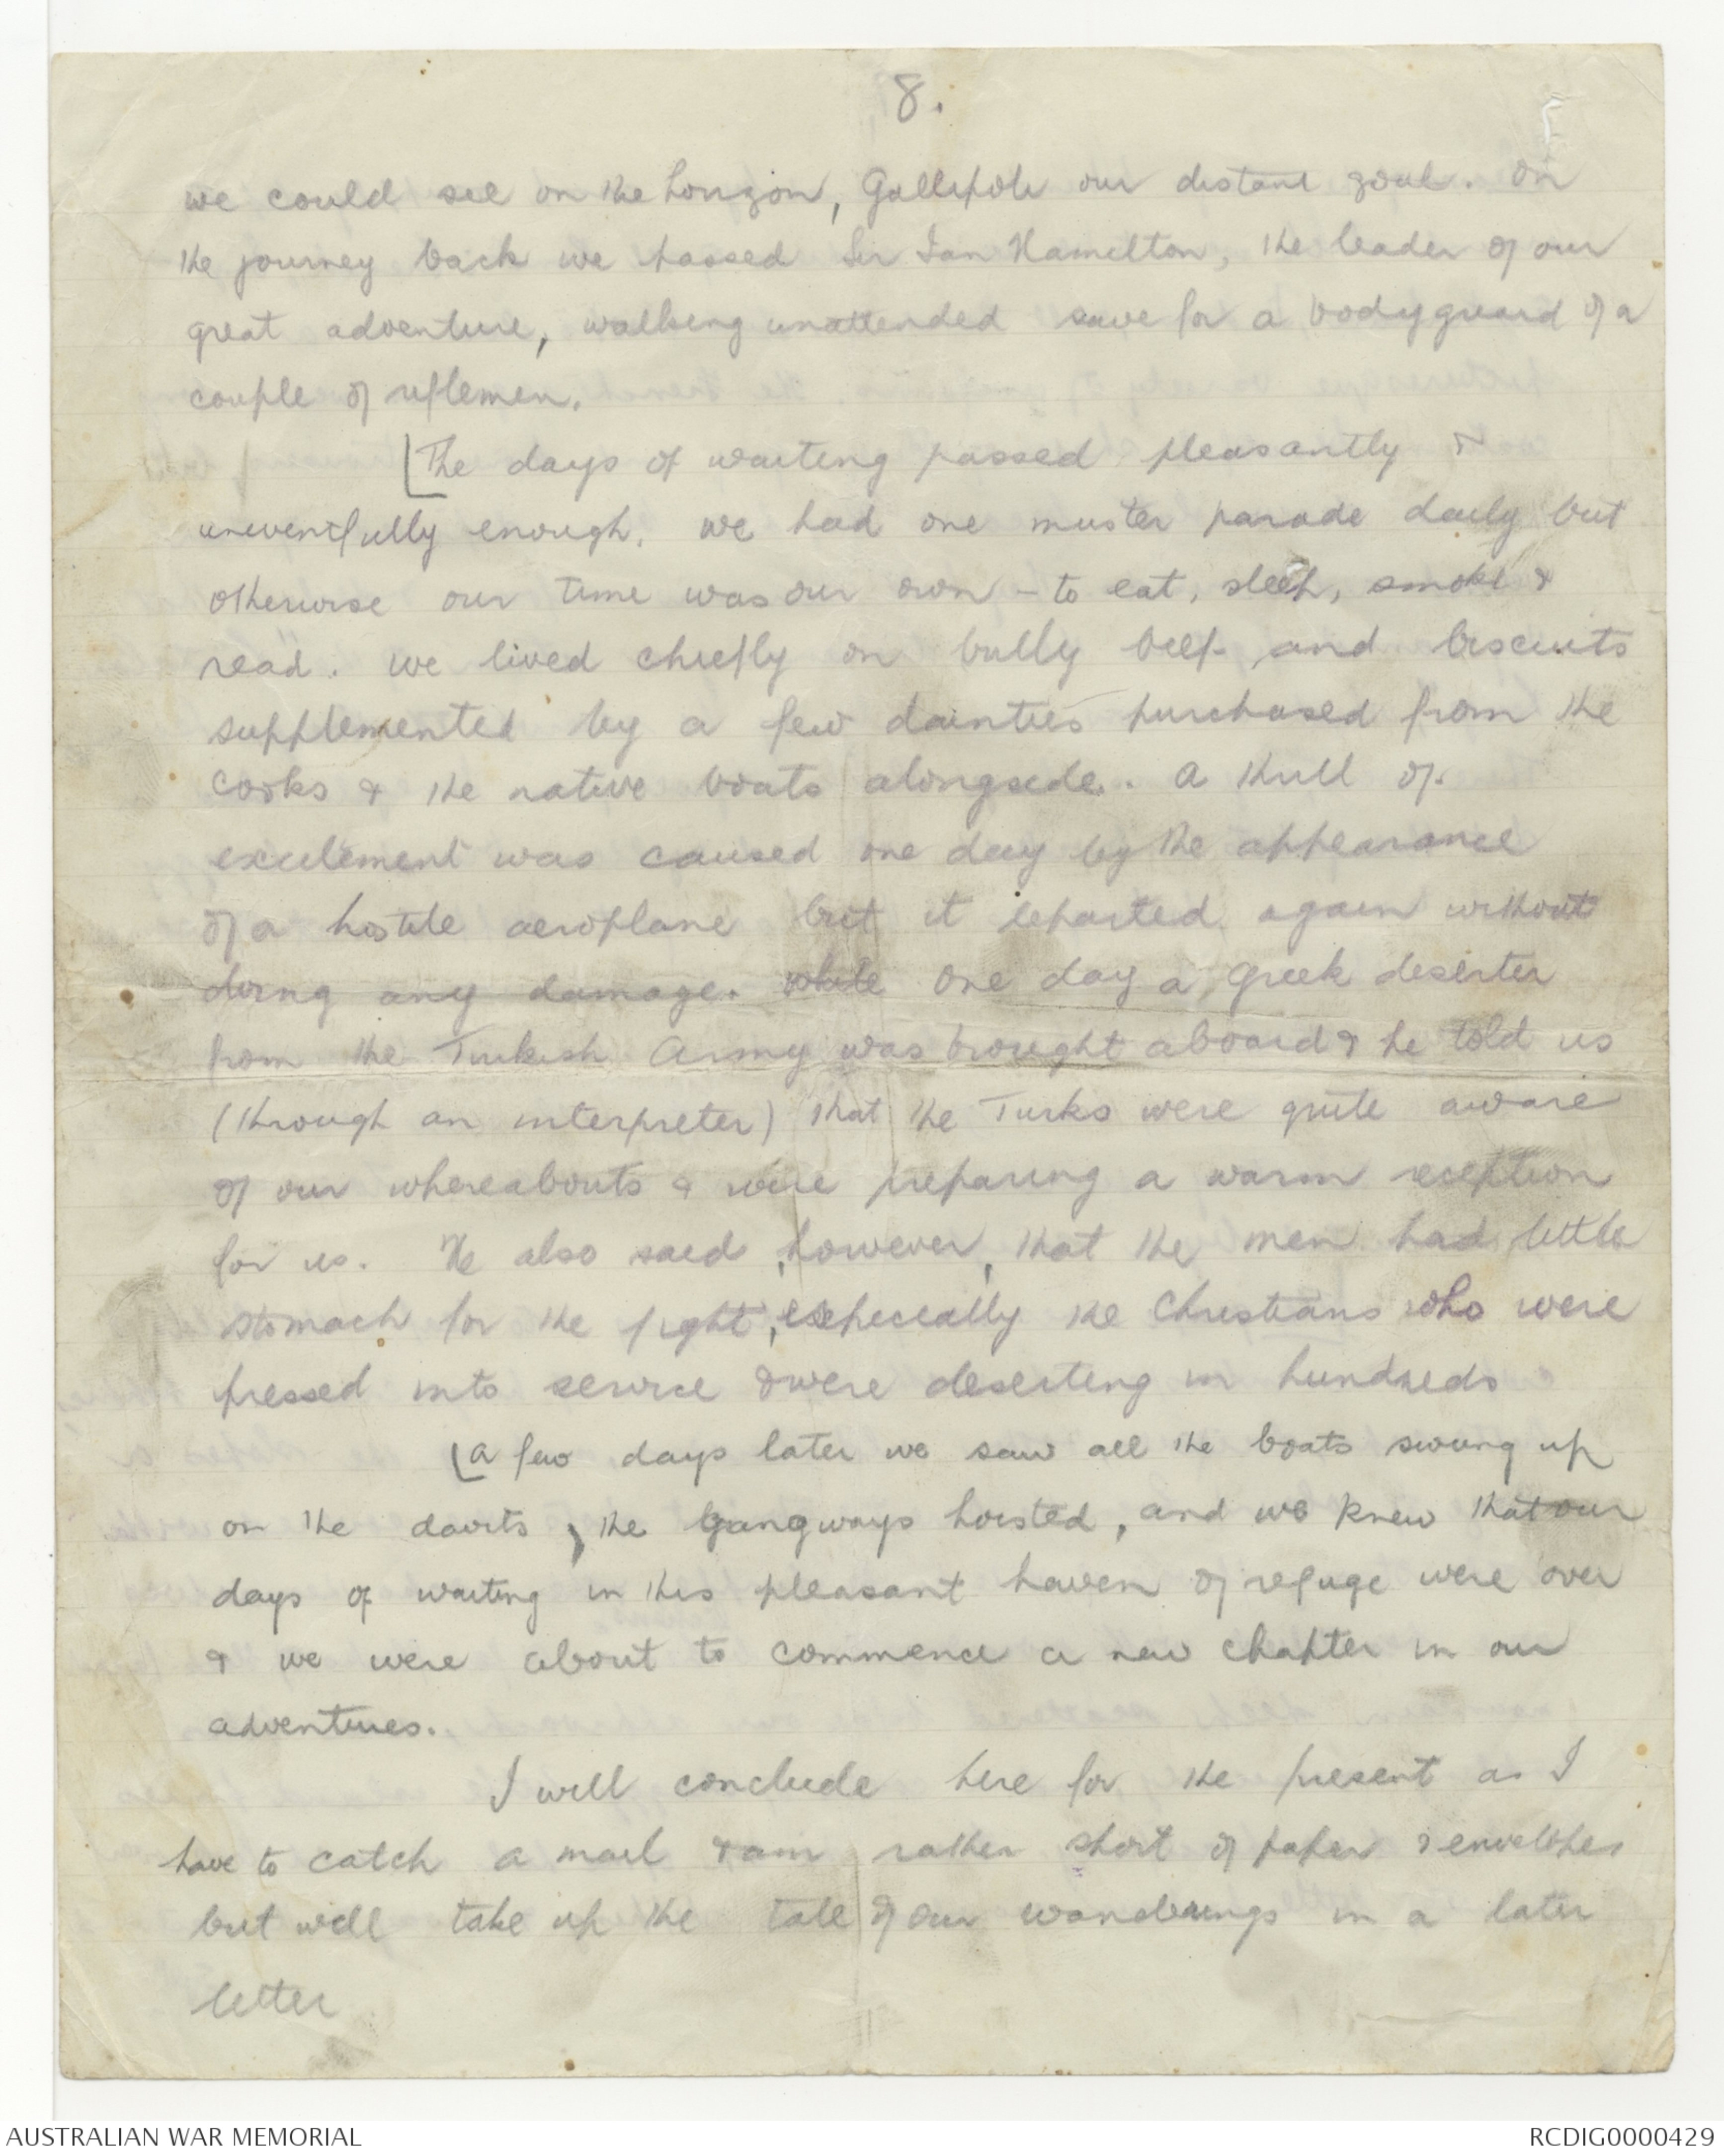 8.
we could see on the horizon, Gallipoli our distant goal. On
the journey back we passed Sir Ian Hamilton, the leader of our
great adventure, walking unattended save for a bodyguard of a
couple of riflemen.
[The days of waiting passed pleasantly &
uneventfully enough. we had one muster parade daily but
otherwise our time was our own - to eat, sleep, smoke &
read. we lived chiefly on bully beef and biscuits
supplemented by a few dainties purchased from the
cooks & the native boats alongside. A thrill of
excitement was caused one day by the appearance
of a hostile aeroplane but it departed again without
doing any damage. while one day a Greek deserter
from the Turkish Army was brought aboard & he told us
(through an interpreter) that the Turks were quite aware
of our whereabouts & were preparing a warm reception
for us. He also said, however, that the men had little
stomach for the fight, especially the Christians who were
pressed into service & were deserting in hundreds
[A few days later we saw all the boats swung up
on the davits, the gangways hoisted, and we knew that our
days of waiting in this pleasant haven of refuge were over
& we were about to commence a new chapter in our
adventures.
I will conclude here for the present as I
have to catch a mail & am rather short of paper & envelopes
but will take up the tale of our wanderings in a later
letter
AUSTRALIAN WAR MEMORIAL
RCDIG0000429